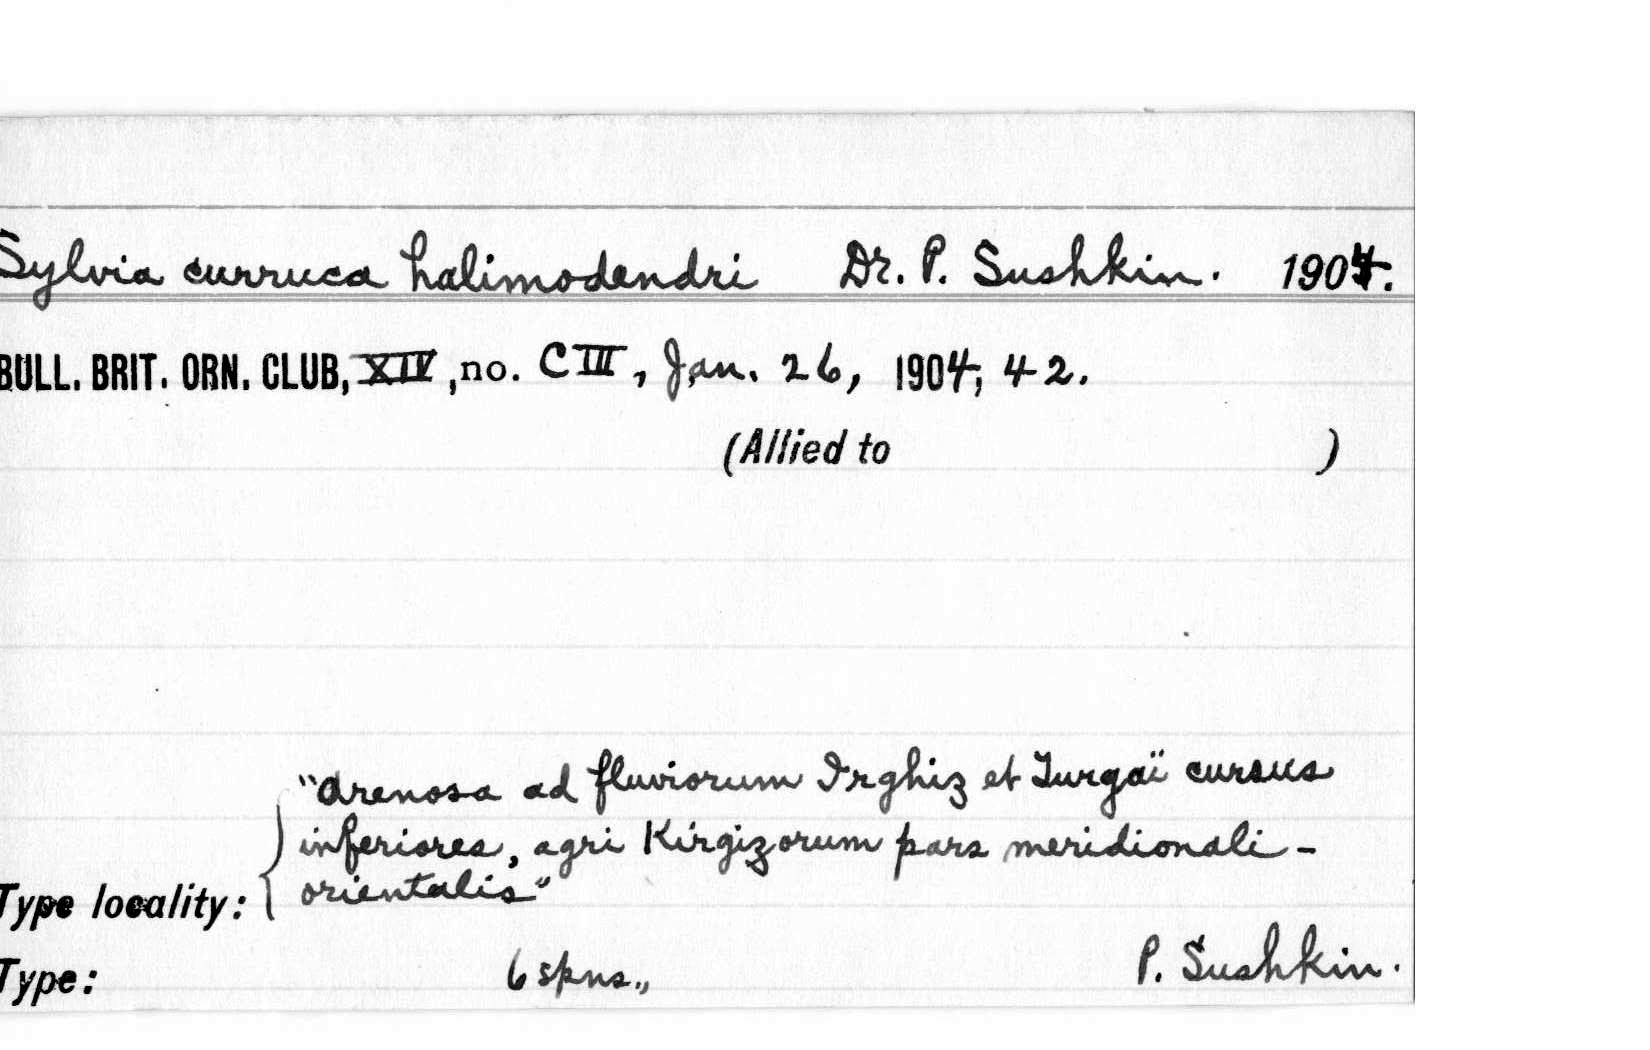 Sylvia curruca halimodendri Dr. P. Sushkin. 1904.
BULL. BRIT. ORN. CLUB, XIV, no. CIII, Jan. 26, 1904, 42.
(Allied to )
"Arenosa ad fluviorum Irghiz et Turgaï cursus
inferiores, agri Kirgizorum pars meridionali-
orientalis"
Type locality:
Type: 6 spns., P. Sushkin.